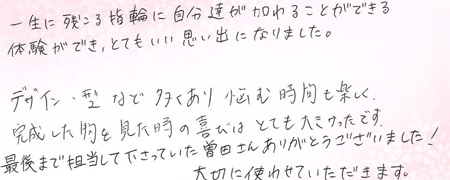 一生に残こる指輪に自分達が加わることができる
体験ができ、とてもいい思い出になりました。
デザイン・型など多くあり悩む時間も楽しく、
完成した物を見た時の喜びは とても大きかったです。
最後まで担当して下さっていた曽田さんありがとうございました!
大切に使わせていただきます。